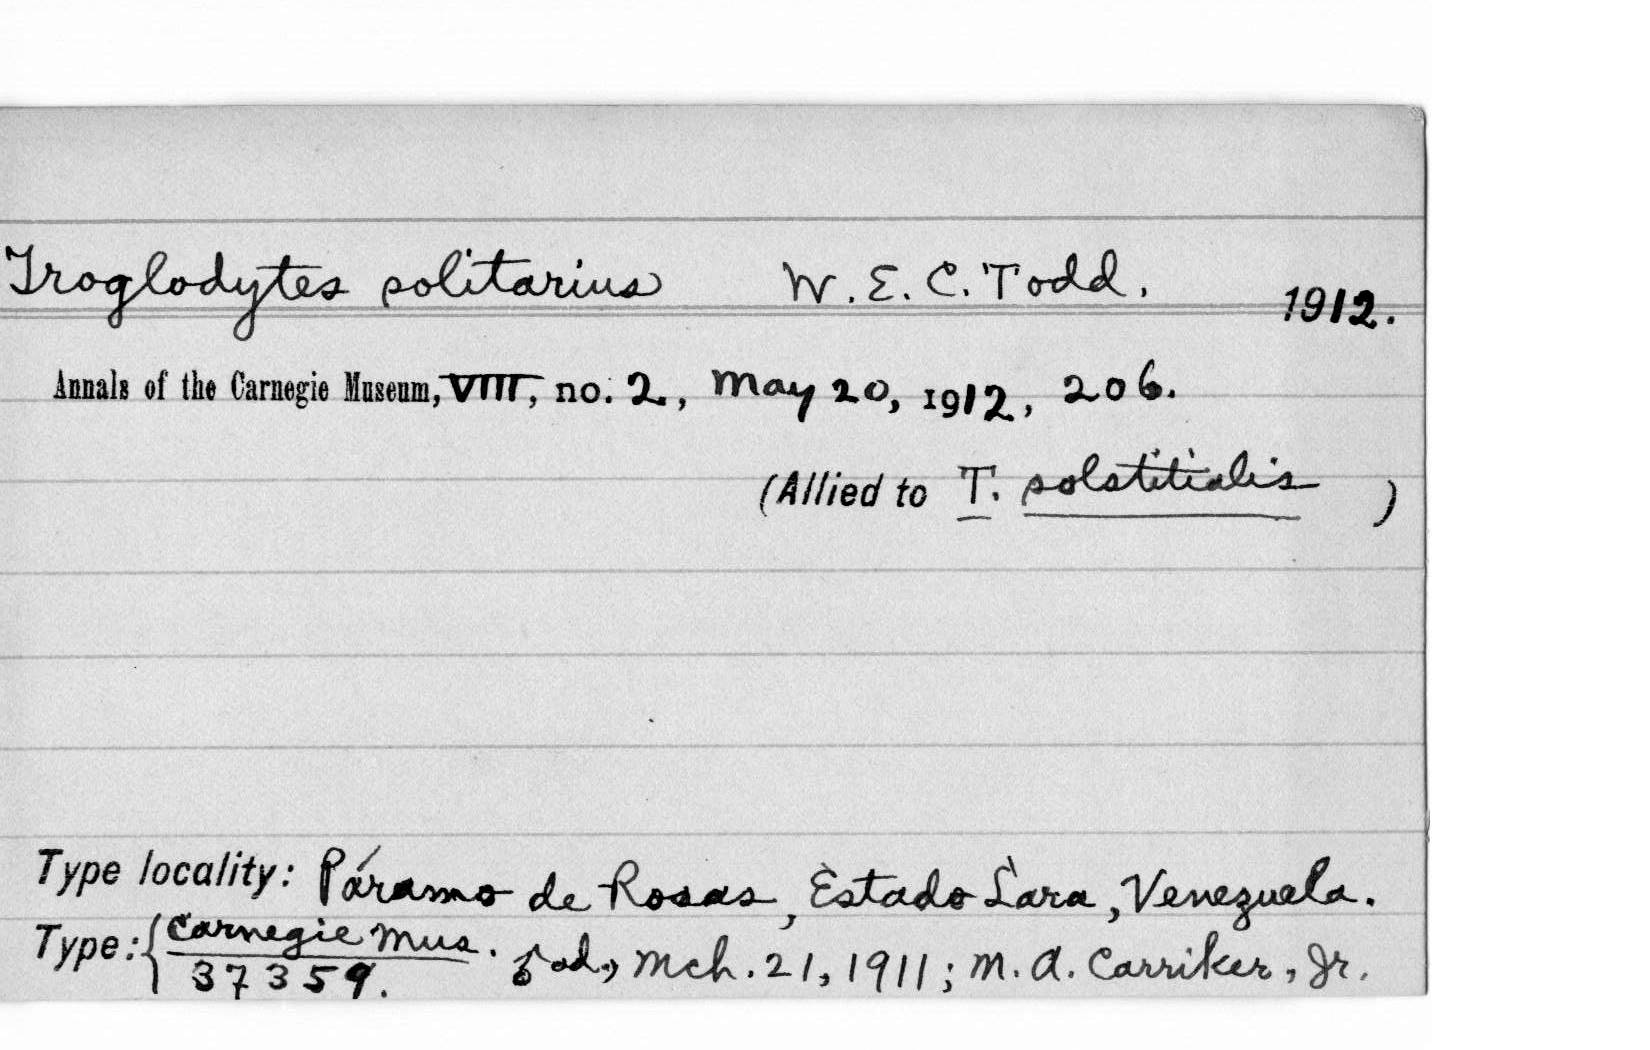 Troglodytes solitarius W. E. C. Todd. 1912.
Annals of the Carnegie Museum, VIII, no. 2, May 20, 1912, 206.
(Allied to T. solstitialis )
Type locality: Páramo de Rosas, Estado Lara, Venezuela.
Type: { Carnegie Mus. ♂ ad., Mch. 21, 1911; M. A. Carriker, Jr.
37359.